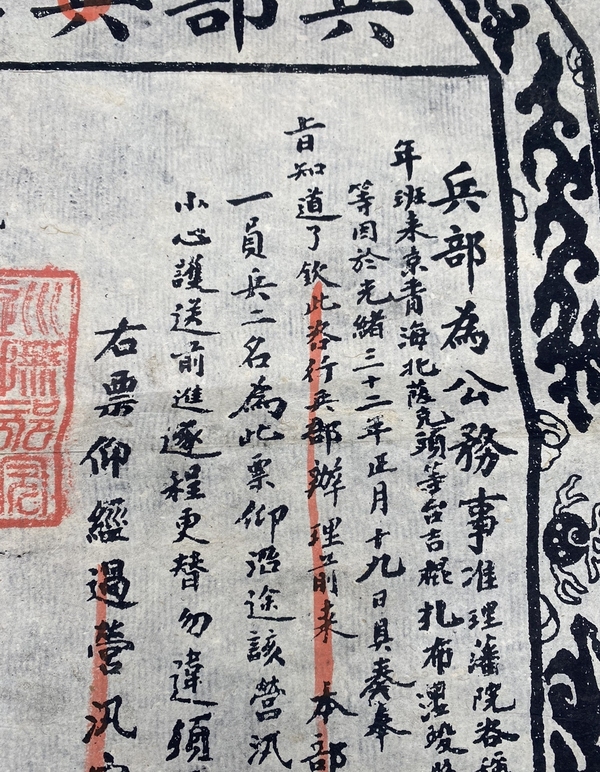 兵部兵
兵部為公務事准理藩院咨稱
年班来京青海扎薩克頭等台吉棍扎布
等因於光緒三十二年正月十九日具奏奉
旨知道了欽此咨行兵部辦理前来本部
一員兵二名為此票仰沿途該營汛
小心護送前進逐程更替勿違須
右票仰經過營汛